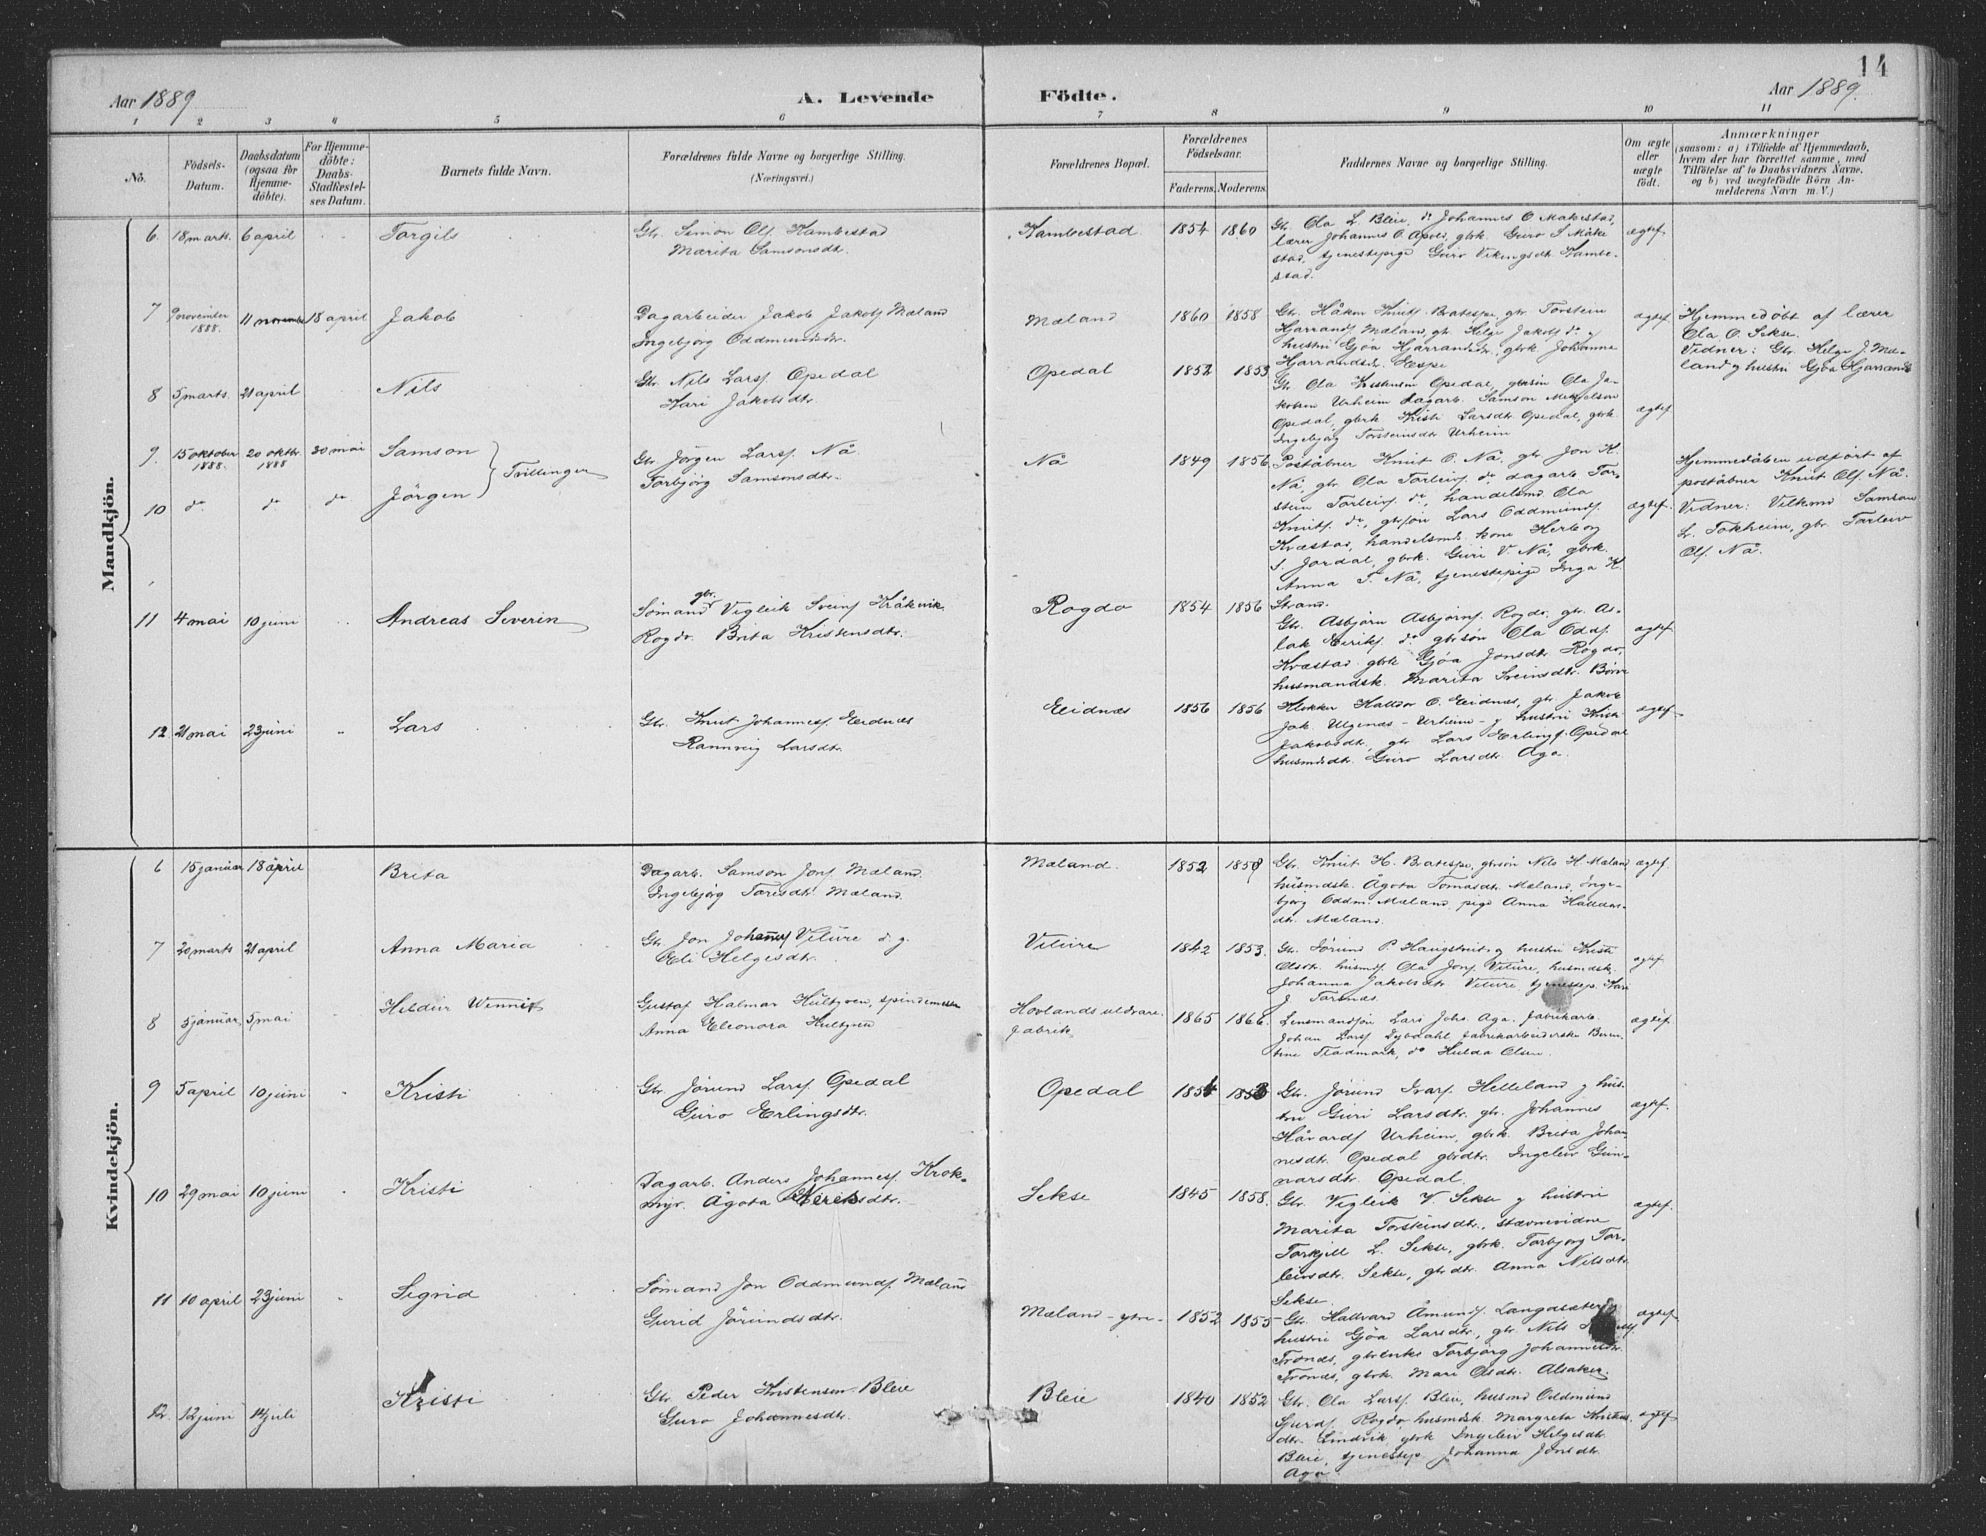 14
Aar 1889 A. Levende Födte. Aar 1889.
1 2 3 4 5 6 7 8 9 10 11
No.
Födsels-Datum.
Daabsdatum (ogsaa for Hjemme-döbte).
For Hjemme-döbte: Daabs-Stadfæstel-ses Datum.
Barnets fulde Navn.
Forældrenes fulde Navne og borgerlige Stilling.
(Næringsvei.)
Forældrenes Bopæl.
Forældrenes Födselsaar.
Faderens. Moderens.
Faddernes Navne og borgerlige Stilling.
Om ægte eller uægte födt.
Anmærkninger
(saasom: a) i Tilfælde af Hjemmedaab,
hvem der har forrettet samme, med
Tilföielse af to Daabsvidners Navne,
og b) ved uægtefödte Börn An-
melderens Navn m. V.)
Mandkjön.
6. 18 marts. 6 april Torgils Gbr. Simon Ols. Kambestad
Marita Samsonsdtr.
Kambestad 1854 1860
Gbr. Ola L. Bleie, do Johannes O. Måkestad,
lærer Johannes O. Apold, gbrk. Guro S. Måke
stad, tjenestepige Guro Vikingsdtr. Kambe-
stad.
ægtef.
7 9 november 1888. 11 november 18 april Jakob Dagarbeider Jakob Jakobs. Mæland
Ingebjørg Oddmundsdtr.
Mæland 1860 1858
Gbr. Håkon Knuts. Bratespe, gbr. Torstein
Hjarrands. Mæland, gbr. Helge Jakobs. do og
hustru Gjøa Hjarrandsdtr., gbrk. Johanna
Hjarrandsdtr. Espe
ægtef.
Hjemmedøbt af lærer
Ola O. Sekse.
Vidner: Gbr. Helge J. Mæ-
land og hustru Gjøa Hjarrands
8 5 marts. 21 april Nils Gbr. Nils Lars. Opedal
Kari Jakobsdtr.
Opedal 1852 1853
Gbr. Ola Kristensen Opedal, gbrsøn Ola Ja-
kobsen Urheim dagarb. Samson Mikkjelson
Opedal, gbrk. Kristi Larsdtr. Opedal, gbrk.
Ingebjørg Torsteinsdtr. Urheim
ægtef
9. 15 oktober 1888. 20 oktbr. 1888 30 mai Samson
10 do do do Jörgen } Tvillinger
Gbr. Jörgen Lars. Nå
Torbjörg Samsonsdtr.
Nå 1849 1856.
Poståbner Knut O. Nå, gbr. Jon K.
Nå, gbr. Ola Torleivs. do dagarb. Tor-
stein Torleivs. do, handelsmd. Ola
Knuts. do, gbrsøn Lars Oddmunds.
Kvæstad, handelsmds. kone Herborg
S. Jordal, gbrk. Guri V. Nå, gbrk.
Anna T. Nå, tjenestepige Inga K.
Strand.
ægtef.
Hjemmedåben udført af
poståbner Knut Ols. Nå.
Vidner: Vilkmd Samson
L. Tokheim, gbr. Torleiv
Ols. Nå.
11 4 mai 10 juni Andreas Severin gbr.
Sømand Vigleik Sveins. Kråkevik
Rogdo. Brita Kristensdtr.
Rogdo 1854 1856
Gbr. Asbjørn Asbjørns. Rogdo, gbr. As-
lak Eiriks. do gbrsøn Ola Odds.
Kvæstad gbrk Gjøa Jonsdtr. Rogdo,
husmandsk. Marita Sveinsdtr. Børve
ægtef.
12. 21 mai 23 juni Lars Gbr. Knut Johannes. Eidnæs
Rannveig Larsdtr.
Eidnæs 1856 1856
Klokker Halldor O. Eidnæs, gbr. Jakob
Jak. Ulgenæs - Urheim - og hustru Kristi
Jakobsdtr, gbr. Lars Erlings. Opedal
husmdsdtr. Guro Larsdtr. Aga.
ægtef.
Kvindekjön.
6 15 januar 18 april Brita Dagarb. Samson Jons. Mæland
Ingebjörg Toresdtr. Mæland.
Mæland. 1852 1858
Gbr. Knut H. Bratespe, gbrsön Nils H. Mæland
husmdsk. Ågota Tomasdtr. Mæland, Inge-
bjørg Oddm. Mæland, pige Anna Halldors-
dtr. Mæland.
ægtef.
7 20 marts 21 april Anna Maria Gbr. Jon Johannes. Vilure d. y.
Eli Helgesdtr.
Vilure 1842 1853.
Gbr. Jörund P. Haugstveit og hustru Kristi
Olsdtr. husmd. Ola Jons. Vilure, husmdsk.
Johanna Jakobsdtr Vilure tjenestep. Kari
J. Tarsnæs.
ægtef.
8 5 januar, 5 mai Heldur Wennif Gustaf Halmar Hultgren, spindemester
Anna Eleonora Hultgren
Hovlands uldvare-
fabrik. 1865 1866.
Lensmandsøn Lars Johs. Aga, fabrikarb.
Johan Lars. Dybdahl fabrikarbeiderske Beren-
tine Fladmark, do Hulda Olsen.
ægtef.
9 5 april 10 juni Kristi Gbr. Jörund Lars. Opedal
Guro Erlingsdtr.
Opedal 1854 1853
Gbr. Jörund Ivars. Helleland og hus-
tru Guri Larsdtr. gbr. Johannes
Håvards. Urheim, gbrk. Brita Johan-
nesdtr. Opedal gbrdtr. Ingeleiv Gun-
narsdtr. Opedal.
ægtef.
10 29 mai 10 juni Kristi Dagarb. Anders Johannes. Krok-
myr. Ågota Nilsdtr.
Sekse 1845 1858.
Gbr. Vigleik V. Sekse og hustru
Marita Torsteinsdtr., stævnevidne
Torkjell L. Sekse, gbrk. Torbjorg Tor-
leivsdtr. Sekse, gbrdtr. Anna Nilsdtr.
Sekse.
ægtef.
11 10 april 23 juni Sigrid Sömand Jon Oddmunds. Mæland
Gurid Jörundsdtr.
Mæland - ytre - 1852 1855
Gbr. Hallvard Åmunds. Langesæter og
hustru Gjøa Larsdtr., gbr. Nils
Trones, gbrenke Torbjørg Johannesdtr.
Trones, gbrk. Mari Olsdtr. Alsaker.
ægtef.
12. 12 juni 14 juli Kristi Gbr. Peder Kristensen Bleie
Guro Johannesdtr.
Bleie 1840 1852
Gbr. Ola Lars. Bleie, husmd Oddmund
Sjurds. Rogdo husmdsk. Margreta Kristens-
dtr. Lindvik gbrk Ingeleiv Helgesdtr.
Bleie, tjenestep. Johanna Jonsdtr.
Aga.
ægtef.